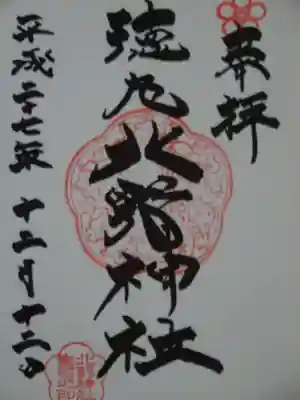 奉拝
徳丸北野神社
平成二十七年 十二月十二日